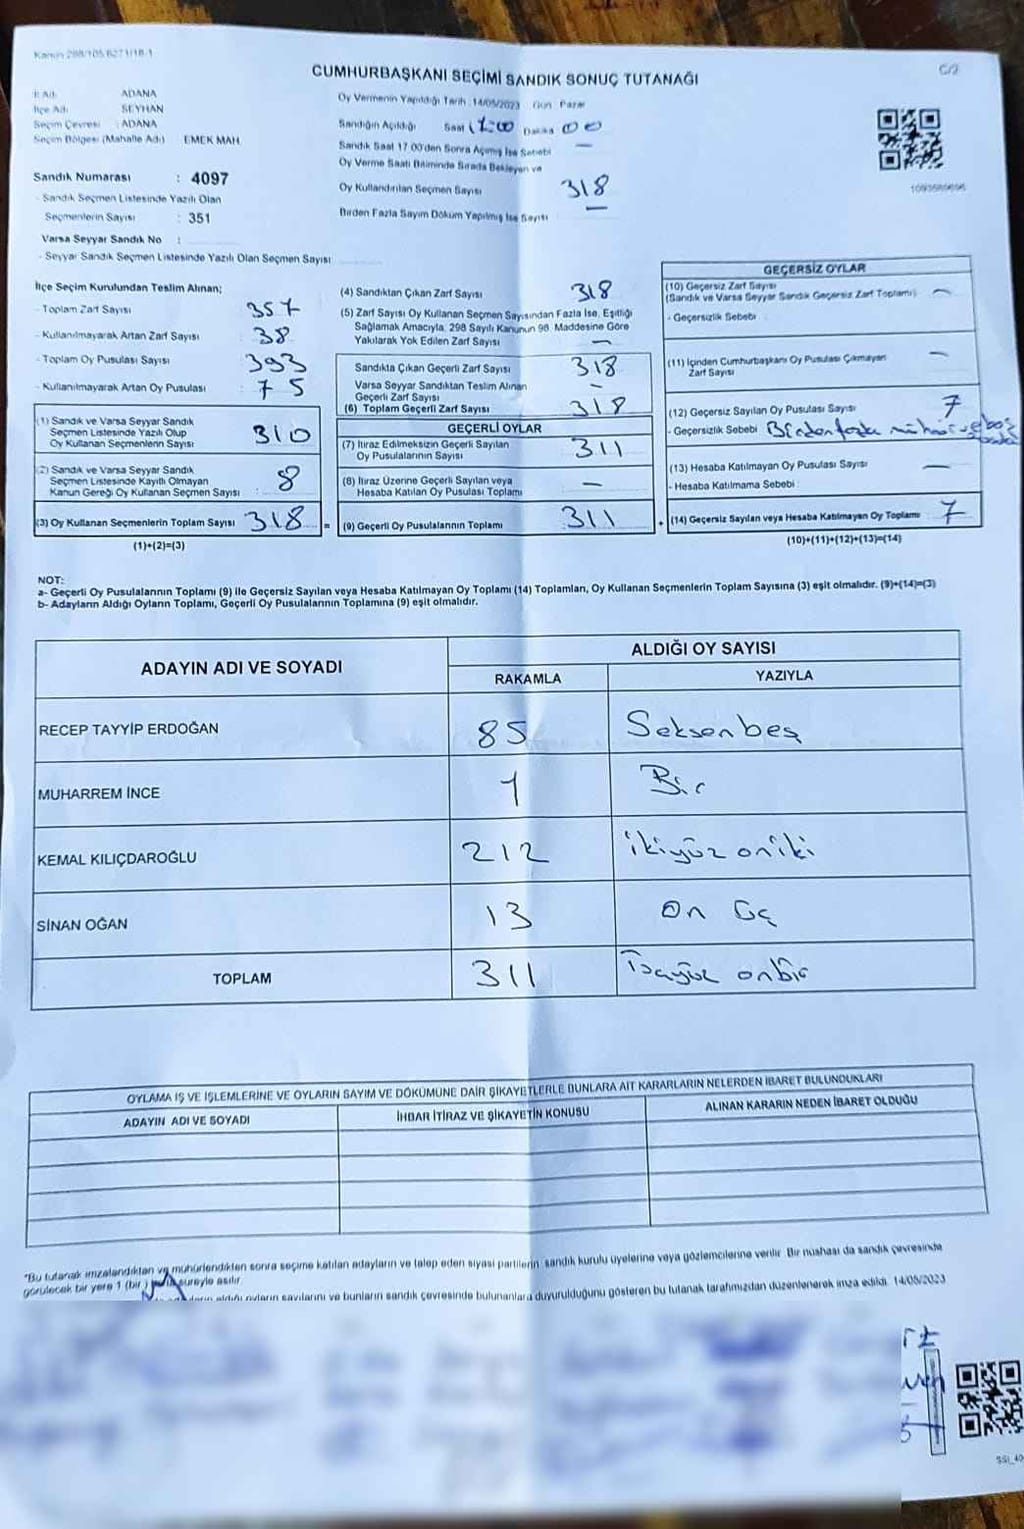 Kanun 298/105/627 1/18-1
CUMHURBAŞKANI SEÇİMİ SANDIK SONUÇ TUTANAĞI
C/2
İl Adı ADANA
İlçe Adı SEYHAN
Seçim Çevresi : ADANA
Seçim Bölgesi (Mahalle Adı) EMEK MAH
Sandık Numarası : 4097
- Sandık Seçmen Listesinde Yazılı Olan
Seçmenlerin Sayısı : 351
Varsa Seyyar Sandık No :
- Seyyar Sandık Seçmen Listesinde Yazılı Olan Seçmen Sayısı
Oy Vermenin Yapıldığı Tarih : 14/05/2023 Gün : Pazar
Sandığın Açıldığı Saat 17:00 Dakika 00
Sandık Saat 17.00'den Sonra Açılmış İse Sebebi —
Oy Verme Saati Bitiminde Sırada Bekleyen ve
Oy Kullandırılan Seçmen Sayısı 318
Birden Fazla Sayım Döküm Yapılmış İse Sayısı —
İlçe Seçim Kurulundan Teslim Alınan;
- Toplam Zarf Sayısı 357
- Kullanılmayarak Artan Zarf Sayısı 38
- Toplam Oy Pusulası Sayısı 393
- Kullanılmayarak Artan Oy Pusulası 75
(1) Sandık ve Varsa Seyyar Sandık
Seçmen Listesinde Yazılı Olup
Oy Kullanan Seçmenlerin Sayısı 310
(2) Sandık ve Varsa Seyyar Sandık
Seçmen Listesinde Kayıtlı Olmayan
Kanun Gereği Oy Kullanan Seçmen Sayısı : 8
(3) Oy Kullanan Seçmenlerin Toplam Sayısı 318 =
(1)+(2)=(3)
(4) Sandıktan Çıkan Zarf Sayısı 318
(5) Zarf Sayısı Oy Kullanan Seçmen Sayısından Fazla İse, Eşitliği
Sağlamak Amacıyla, 298 Sayılı Kanunun 98. Maddesine Göre
Yakılarak Yok Edilen Zarf Sayısı —
Sandıkta Çıkan Geçerli Zarf Sayısı 318
Varsa Seyyar Sandıktan Teslim Alınan
Geçerli Zarf Sayısı —
(6) Toplam Geçerli Zarf Sayısı 318
GEÇERLİ OYLAR
(7) İtiraz Edilmeksizin Geçerli Sayılan
Oy Pusulalarının Sayısı 311
(8) İtiraz Üzerine Geçerli Sayılan veya
Hesaba Katılan Oy Pusulası Toplamı —
(9) Geçerli Oy Pusulalarının Toplamı 311 +
GEÇERSİZ OYLAR
(10) Geçersiz Zarf Sayısı
(Sandık ve Varsa Seyyar Sandık Geçersiz Zarf Toplamı) —
- Geçersizlik Sebebi :
(11) İçinden Cumhurbaşkanı Oy Pusulası Çıkmayan
Zarf Sayısı —
(12) Geçersiz Sayılan Oy Pusulası Sayısı 7
- Geçersizlik Sebebi Birden fazla mühür ve boş
(13) Hesaba Katılmayan Oy Pusulası Sayısı —
- Hesaba Katılmama Sebebi :
(14) Geçersiz Sayılan veya Hesaba Katılmayan Oy Toplamı 7
(10)+(11)+(12)+(13)=(14)
NOT:
a- Geçerli Oy Pusulalarının Toplamı (9) ile Geçersiz Sayılan veya Hesaba Katılmayan Oy Toplamı (14) Toplamları, Oy Kullanan Seçmenlerin Toplam Sayısına (3) eşit olmalıdır. (9)+(14)=(3)
b- Adayların Aldığı Oyların Toplamı, Geçerli Oy Pusulalarının Toplamına (9) eşit olmalıdır.
ADAYIN ADI VE SOYADI
ALDIĞI OY SAYISI
RAKAMLA YAZIYLA
RECEP TAYYİP ERDOĞAN 85 Seksen beş
MUHARREM İNCE 1 Bir
KEMAL KILIÇDAROĞLU 212 ikiyüz oniki
SİNAN OĞAN 13 On üç
TOPLAM 311 üçyüz onbir
OYLAMA İŞ VE İŞLEMLERİNE VE OYLARIN SAYIM VE DÖKÜMÜNE DAİR ŞİKAYETLERLE BUNLARA AİT KARARLARIN NELERDEN İBARET BULUNDUKLARI
ADAYIN ADI VE SOYADI İHBAR İTİRAZ VE ŞİKAYETİN KONUSU ALINAN KARARIN NEDEN İBARET OLDUĞU
"Bu tutanak imzalandıktan ve mühürlendikten sonra seçime katılan adayların ve talep eden siyasi partilerin sandık kurulu üyelerine veya gözlemcilerine verilir. Bir nüshası da sandık çevresinde
görülecek bir yere 1 (bir) süreyle asılır.
aldığı oyların sayılarını ve bunların sandık çevresinde bulunanlara duyurulduğunu gösteren bu tutanak tarafımızdan düzenlenerek imza edildi. 14/05/2023